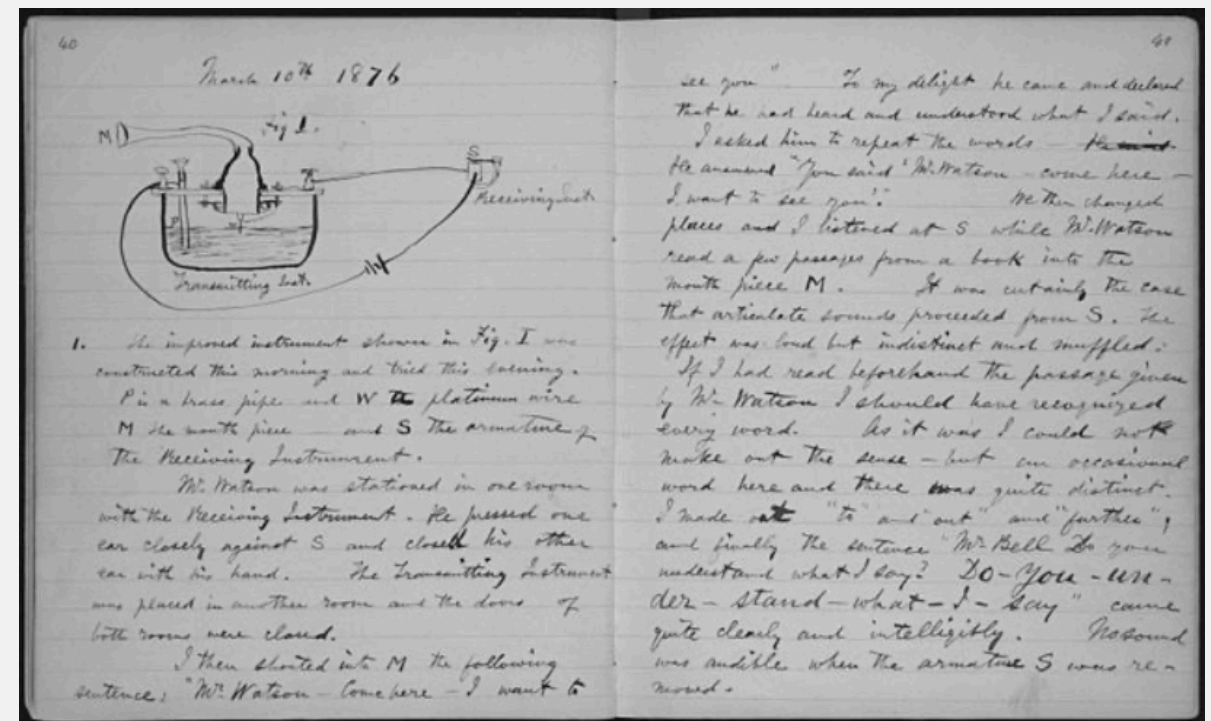 40
March 10th 1876
Fig I.
M
S
Receiving Inst.
P
W
Transmitting Inst.
1. The improved instrument shown in Fig. I was
constructed this morning and tried this evening.
P is a brass pipe and W the platinum wire
M the mouth piece and S the armature of
the Receiving Instrument.
Mr. Watson was stationed in one room
with the Receiving Instrument. He pressed one
ear closely against S and closed his other
ear with his hand. The Transmitting Instrument
was placed in another room and the doors of
both rooms were closed.
I then shouted into M the following
sentence: "Mr. Watson – Come here – I want to
41
see you". To my delight he came and declared
that he had heard and understood what I said.
I asked him to repeat the words –
He answered "You said 'Mr. Watson – come here –
I want to see you'." We then changed
places and I listened at S while Mr. Watson
read a few passages from a book into the
mouth piece M. It was certainly the case
that articulate sounds proceeded from S. The
effect was loud but indistinct and muffled.
If I had read beforehand the passage given
by Mr. Watson I should have recognized
every word. As it was I could not
make out the sense – but an occasional
word here and there was quite distinct.
I made out "to" and "out" and "further";
and finally the sentence "Mr. Bell Do you
understand what I say? Do–you–un–
der–stand–what–I–say" came
quite clearly and intelligibly. No sound
was audible when the armature S was re–
moved.